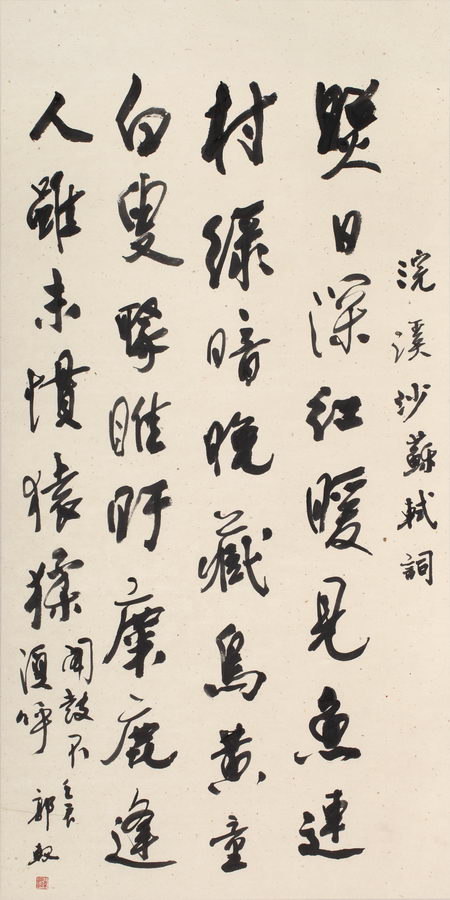 浣溪沙蘇軾詞
照日深紅暖見魚連
村緑暗晚藏烏黄童
白叟聚睢盱麋鹿逢
人雖未慣猿猱
聞鼓不
須呼
郭